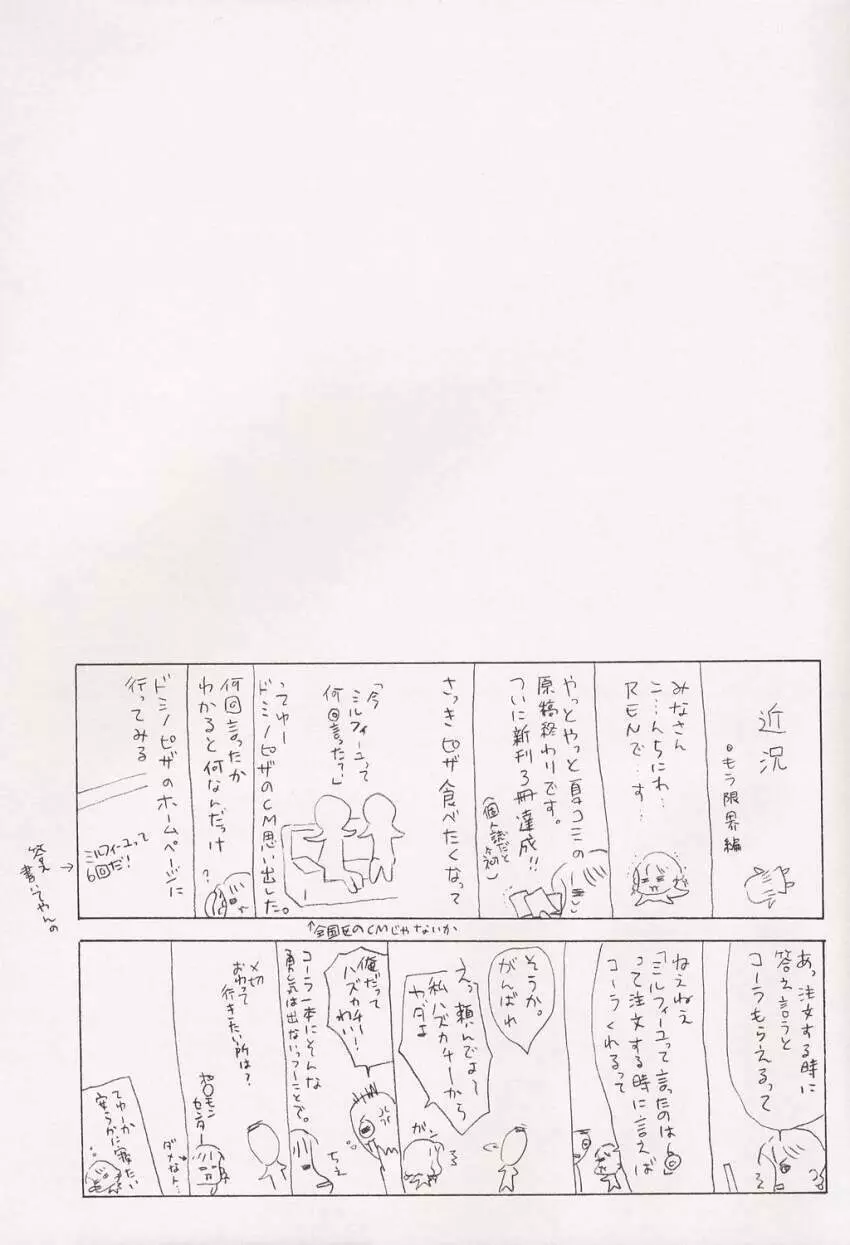 近況
•もう限界編
みなさん
こ…んちにわ…
RENで…す…
やっとやっと夏コミの
原稿終わりです。
ついに新刊3冊達成!!
(個人誌だと
さっきピザ食べたくなって
「今
ミルフィーユって
何回言った?」
ってゆー
ドミノピザのCM思い出した。
↑全国区のCMじゃないか
何回言ったか
わかると何なんだっけ
?
ドミノピザのホームページに
行ってみる
ミルフィーユって
6回だ!
答え→
書いてやんの
あっ注文する時に
答え言うと
コーラもらえるって
ねえねえ
「ミルフィーユって言ったのは6回」
って注文する時に言えば
コーラくれるって
そうか。
がんばれ
えっ頼んでよ〜
私ハズカチーから
ヤダよ
ガン
俺だって
ハズカチー!
わい!
コーラ一本にそんな
勇気は出ないっつーことで。
ちぇ
〆切
おわって
行きたい所は?
センター
ダメな人…
てゆーか
安らかに寝たい